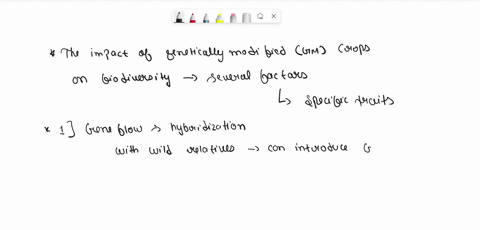 * The impact of genetically modified (GM) crops
on biodiversity → several factors
↳ specific traits
* 1] Gene flow → hybridization
with wild relatives → can introduce G